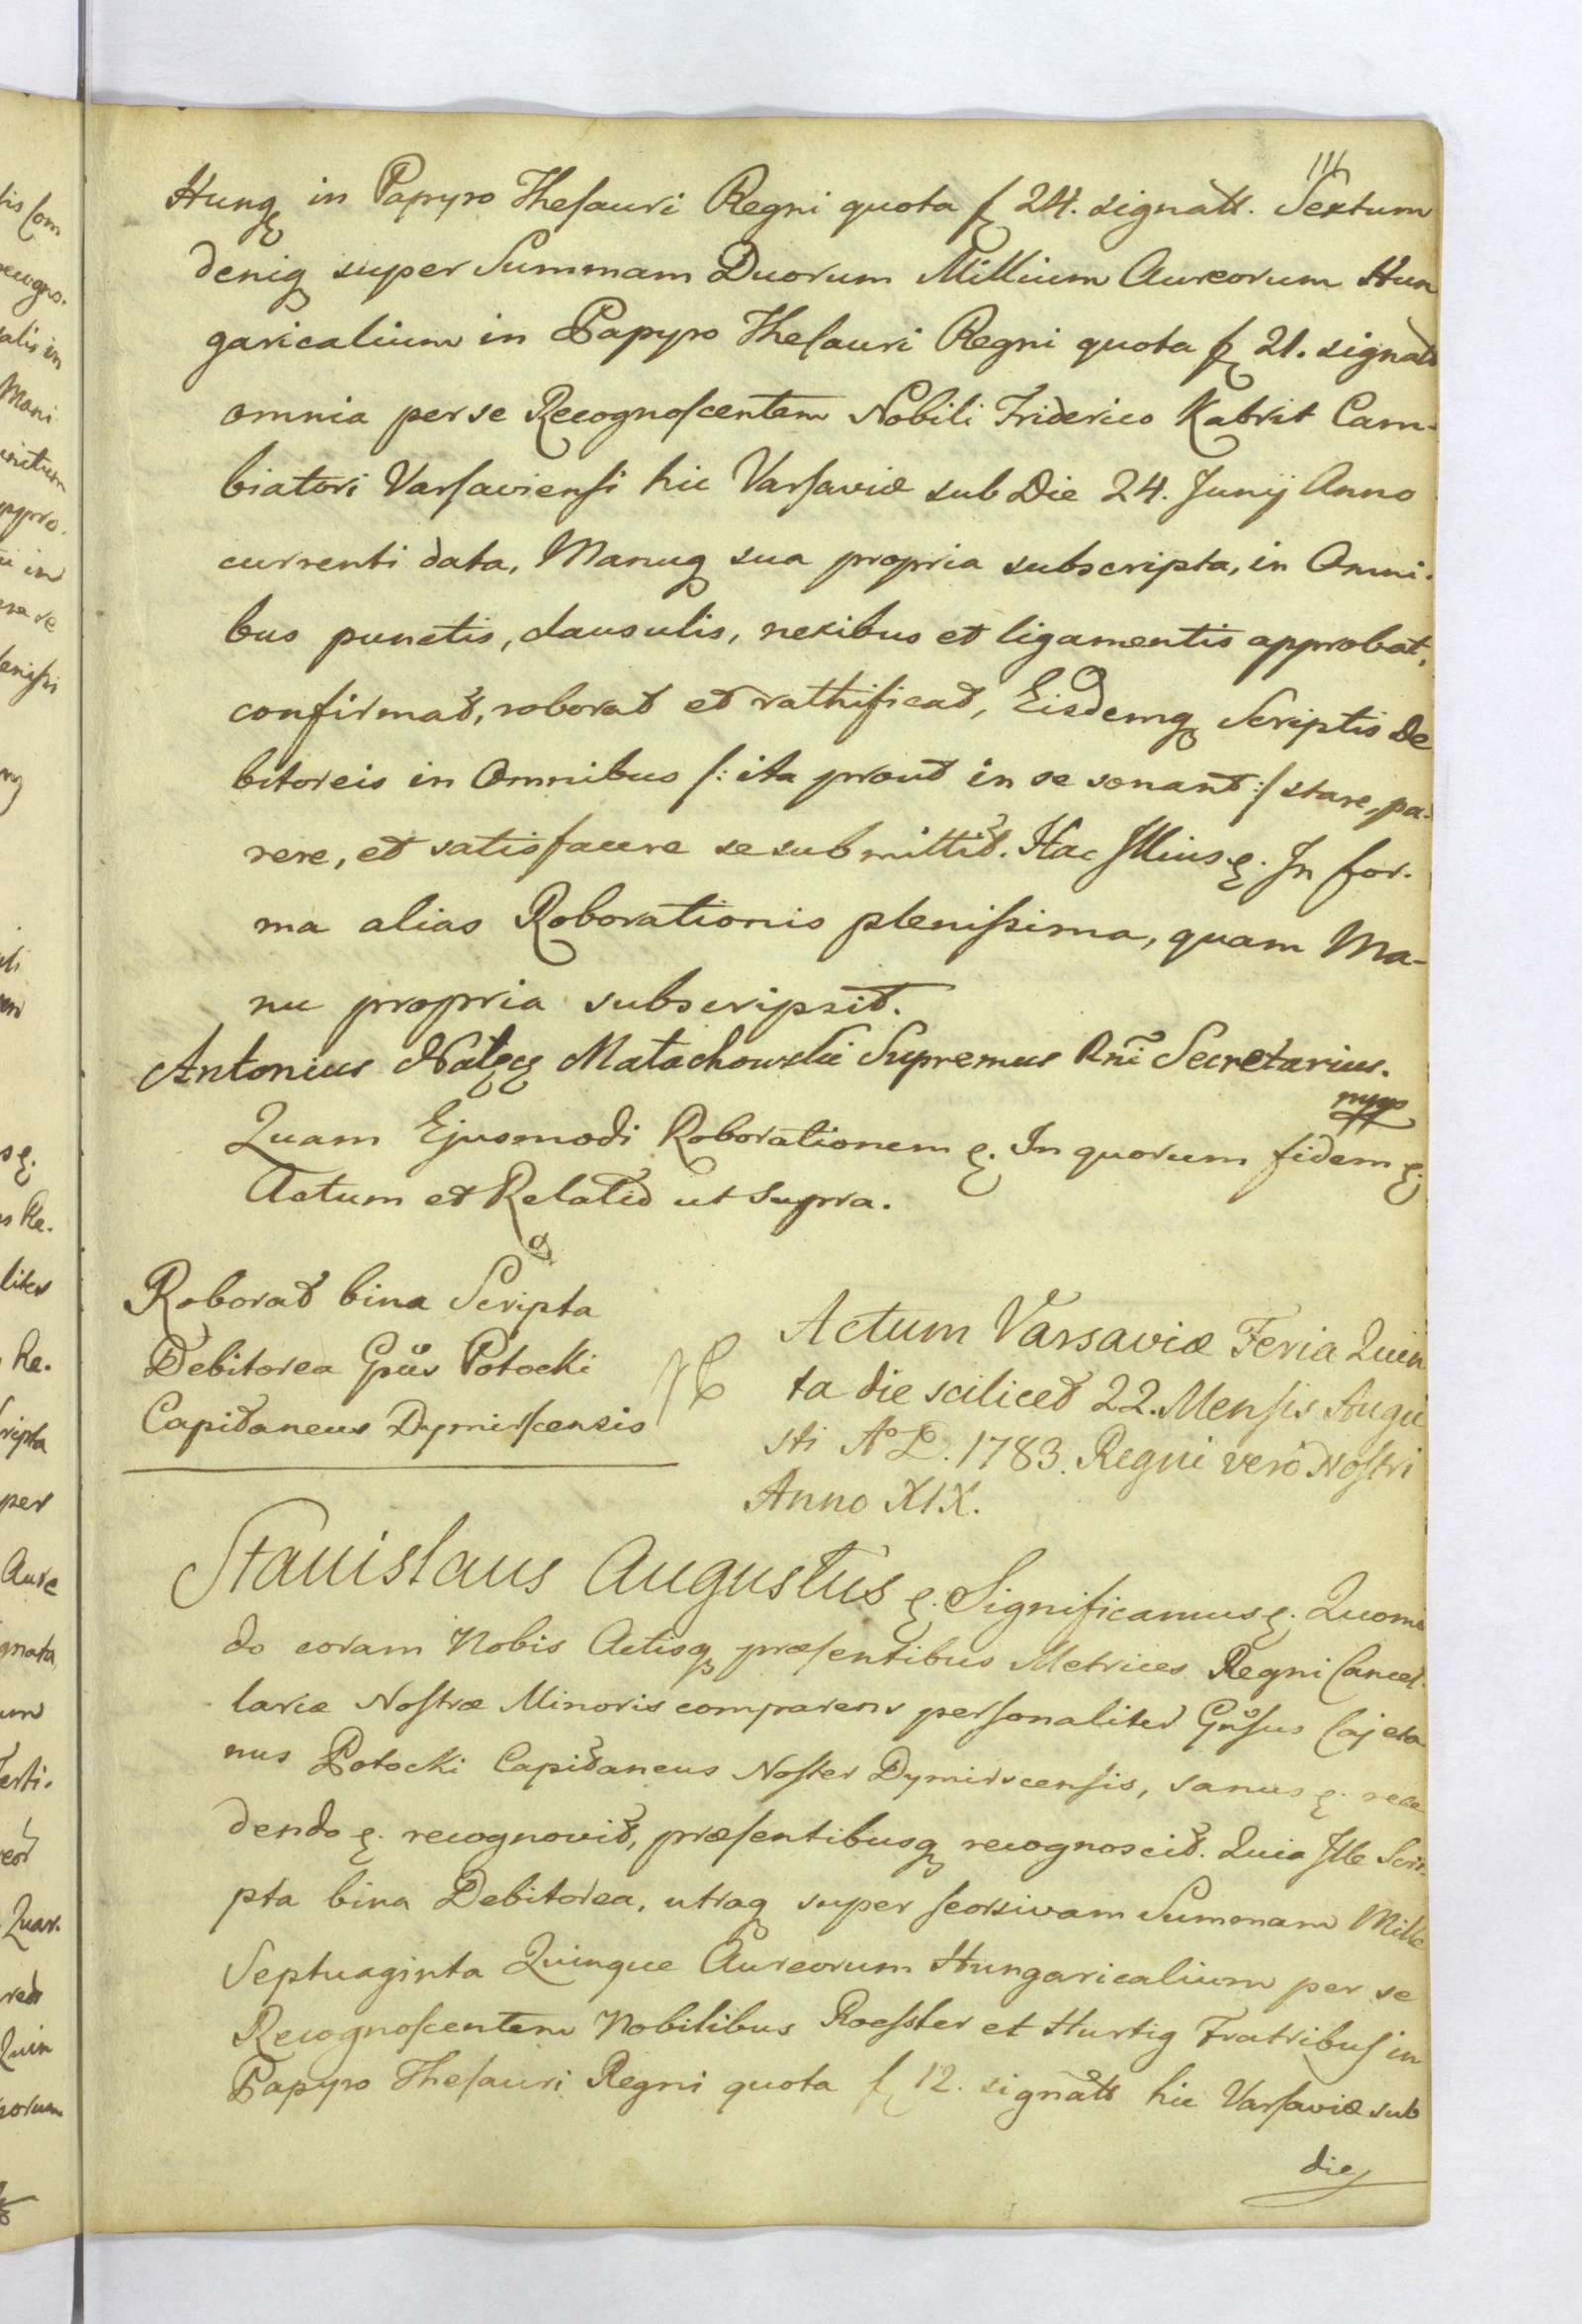 111
Hung in Papyro Thesauri Regni quota f 24. signatt. Sextum
deniq super Summam Duorum Millium Aureorum Hun
garicalium in Papyro Thesauri Regni quota f 21. signatt
omnia per se Recognoscentem Nobili Friderico Kabrit Cam-
biatori Varsaviensi hic Varsaviæ sub Die 24. Junij Anno
currenti data, Manuq sua propria subscripta, in Omni-
bus punctis, clausulis, nexibus et ligamentis approbat,
confirmat, roborat et rathificat, Eisdemq Scriptis De
bitoreis in Omnibus /: ita prout in se sonant :/ stare, pa-
rere, et satisfacere se submittit. Hac Illius &. In for-
ma alias Roborationis plenissima, quam Ma-
nu propria subscripsit.
Antonius Nałęcz Małachowski Supremus Rni Secretarius.
mpp
Quam Ejusmodi Roborationem &. In quorum fidem &.
Actum et Relatio ut supra.
Roborat bina Scripta
Debitorea Gnus Potocki
Capitaneus Dymirscensis
Actum Varsaviæ Feria Quin
ta die scilicet 22. Mensis Augu
sti A° D. 1783. Regni vero Nostri
Anno XIX.
Stanislaus Augustus &. Significamus &. Quomo
do coram Nobis Actisq præsentibus Metrices Regni Cancel-
lariæ Nostræ Minoris comparens personaliter Gnsus Cajeta
nus Potocki Capitaneus Noster Dymirscensis, sanus &. rece
dendo &. recognovit, præsentibusq recognoscit. Quia Ille Scri-
pta bina Debitorea, utraq super seorsivam Summam Mille
Septuaginta Quinque Aureorum Hungaricalium per se
Recognoscentem Nobilibus Roessler et Hurtig Fratribus in
Papyro Thesauri Regni quota f 12. signatt hic Varsaviæ sub
die